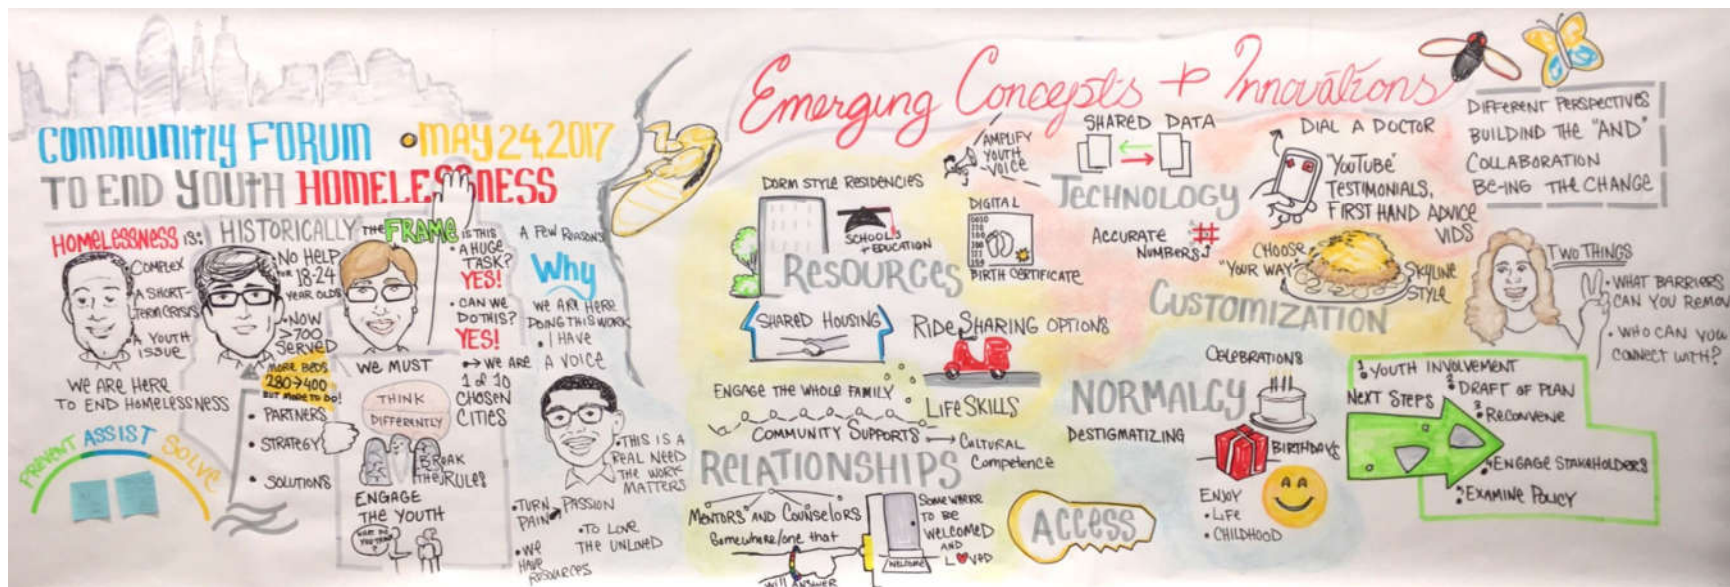 COMMUNITY FORUM • MAY 24, 2017
TO END YOUTH HOMELESSNESS
HOMELESSNESS IS:
COMPLEX
A SHORT-
TERM CRISIS
A YOUTH
ISSUE
WE ARE HERE
TO END HOMELESSNESS
PREVENT ASSIST SOLVE
HISTORICALLY
NO HELP
FOR 18-24
YEAR OLDS
• NOW
>700
SERVED
MORE BEDS
280→400
BUT MORE TO DO!
• PARTNERS
• STRATEGY
• SOLUTIONS
THE FRAME
IS THIS
• A HUGE
TASK?
YES!
• CAN WE
DO THIS?
YES!
↔ WE ARE
1 of 10
CHOSEN
CITIES
WE MUST
THINK
DIFFERENTLY
BREAK
THE RULES
ENGAGE
THE YOUTH
WHAT DO
YOU THINK
?
A FEW REASONS
Why
WE ARE HERE
DOING THIS WORK
• I HAVE
A VOICE
• THIS IS A
REAL NEED
THE WORK
MATTERS
• TURN
PAIN → PASSION
• TO LOVE
THE UNLOVED
• WE
HAVE
RESOURCES
Emerging Concepts + Innovations
DORM STYLE RESIDENCIES
SCHOOLS
+ EDUCATION
AMPLIFY
YOUTH
VOICE
DIGITAL
BIRTH CERTIFICATE
RESOURCES
SHARED HOUSING
RIDE SHARING OPTIONS
LIFE SKILLS
ENGAGE THE WHOLE FAMILY
COMMUNITY SUPPORTS → CULTURAL
COMPETENCE
RELATIONSHIPS
MENTORS AND COUNSELORS
Somewhere/one that
WILL ANSWER
WELCOME
SOMEWHERE
TO BE
WELCOMED
AND
LOVED
ACCESS
SHARED DATA
TECHNOLOGY
ACCURATE
NUMBERS
#
DIAL A DOCTOR
"YOUTUBE"
TESTIMONIALS,
FIRST HAND ADVICE
VIDS
CHOOSE
"YOUR WAY"
SKYLINE
STYLE
CUSTOMIZATION
CELEBRATIONS
NORMALCY
DESTIGMATIZING
BIRTHDAYS
ENJOY
• LIFE
• CHILDHOOD
DIFFERENT PERSPECTIVES
BUILDIND THE "AND"
COLLABORATION
BE-ING THE CHANGE
TWO THINGS
• WHAT BARRIERS
CAN YOU REMOV
• WHO CAN YOU
CONNECT WITH?
NEXT STEPS
1 YOUTH INVOLVEMENT
2 DRAFT OF PLAN
3 RECONVENE
4 ENGAGE STAKEHOLDERS
5 EXAMINE POLICY